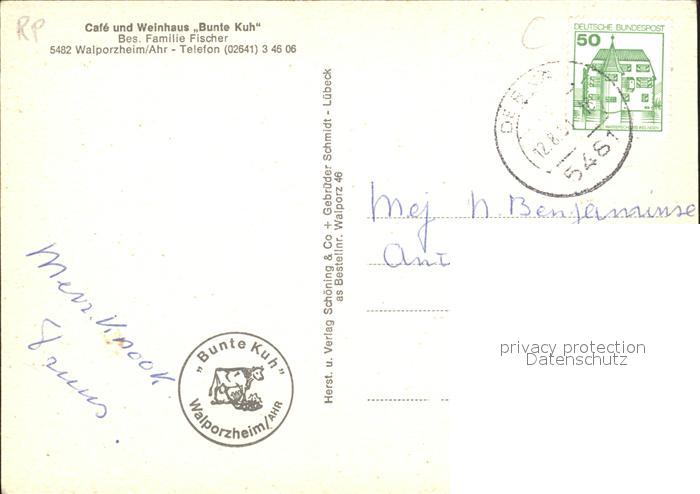 RP
Café und Weinhaus „Bunte Kuh“
Bes. Familie Fischer
5482 Walporzheim/Ahr - Telefon (02641) 3 46 06
DEUTSCHE BUNDESPOST
50
12.8.
5481
Herst. u. Verlag Schöning & Co + Gebrüder Schmidt - Lübeck
as Bestellnr. Walporz 46
Mej N. Benjaminse
Mevr. Knook
„Bunte Kuh“
Walporzheim/AHR
privacy protection
Datenschutz